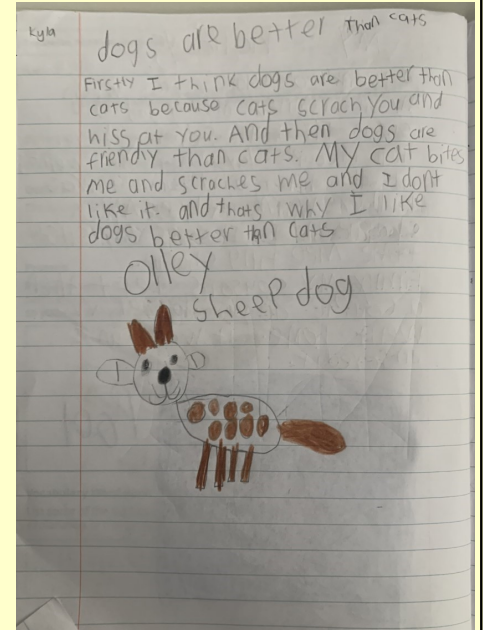 Kyla
dogs are better than cats
Firstly I think dogs are better than
cats because cats scrach you and
hiss at you. And then dogs are
friendly than cats. My cat bites
me and scraches me and I dont
like it. and thats why I like
dogs better than cats
Olley
sheep dog